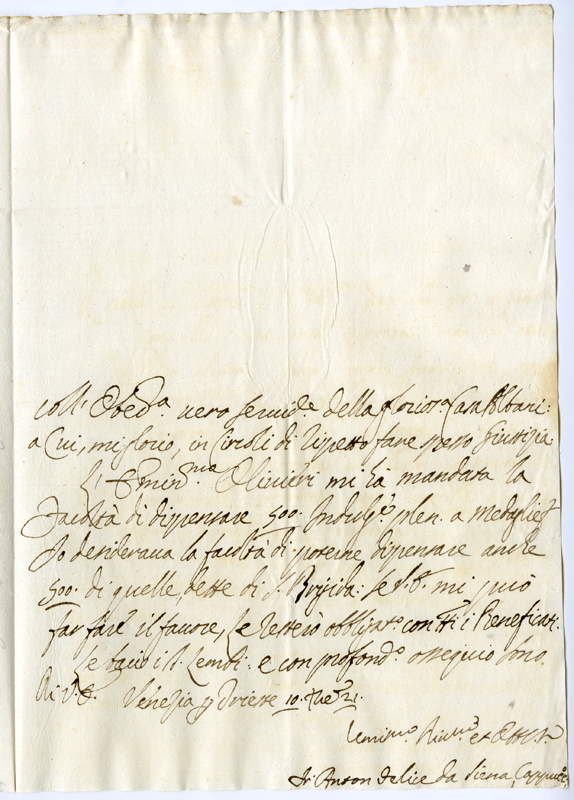 coll' Obed.a vero servid.e della glorios.a Casa Albani:
a cui, mi glorio, in Circoli di rispetto fare spesso Giustizia
L' Emin.mo Olivieri mi hà mandata la
Facoltà di dispensare 500. Indulg.e plen. a Medaglie
Io desiderava la facoltà di poterne dispensare anche
500. di quelle, dette di S. Brigida: se V.E. mi può
far fare il favore, Le resterò obbligat.o con tt.i i Beneficati.
Le bacio i S. Lembi: e con profond.o ossequio sono.
Di V.E. Venezia p Trieste 10. 21.
et
Fr Anton Felice da Siena Cappuc.o